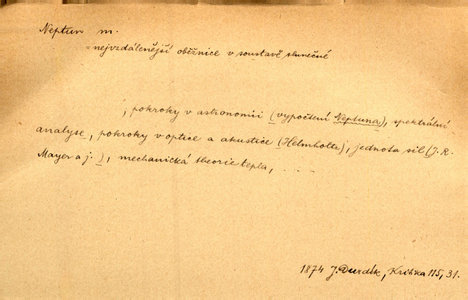 Neptun m.
= nejvzdálenější oběžnice v soustavě sluneční
, pokroky v astronomii (vypočtení Neptuna), spektrální
analyse, pokroky v optice a akustice (Helmholtz), jednota sil (J. R.
Mayer a j.), mechanická theorie tepla, . . .
1874 J. Durdík, Kritika 115, 31.